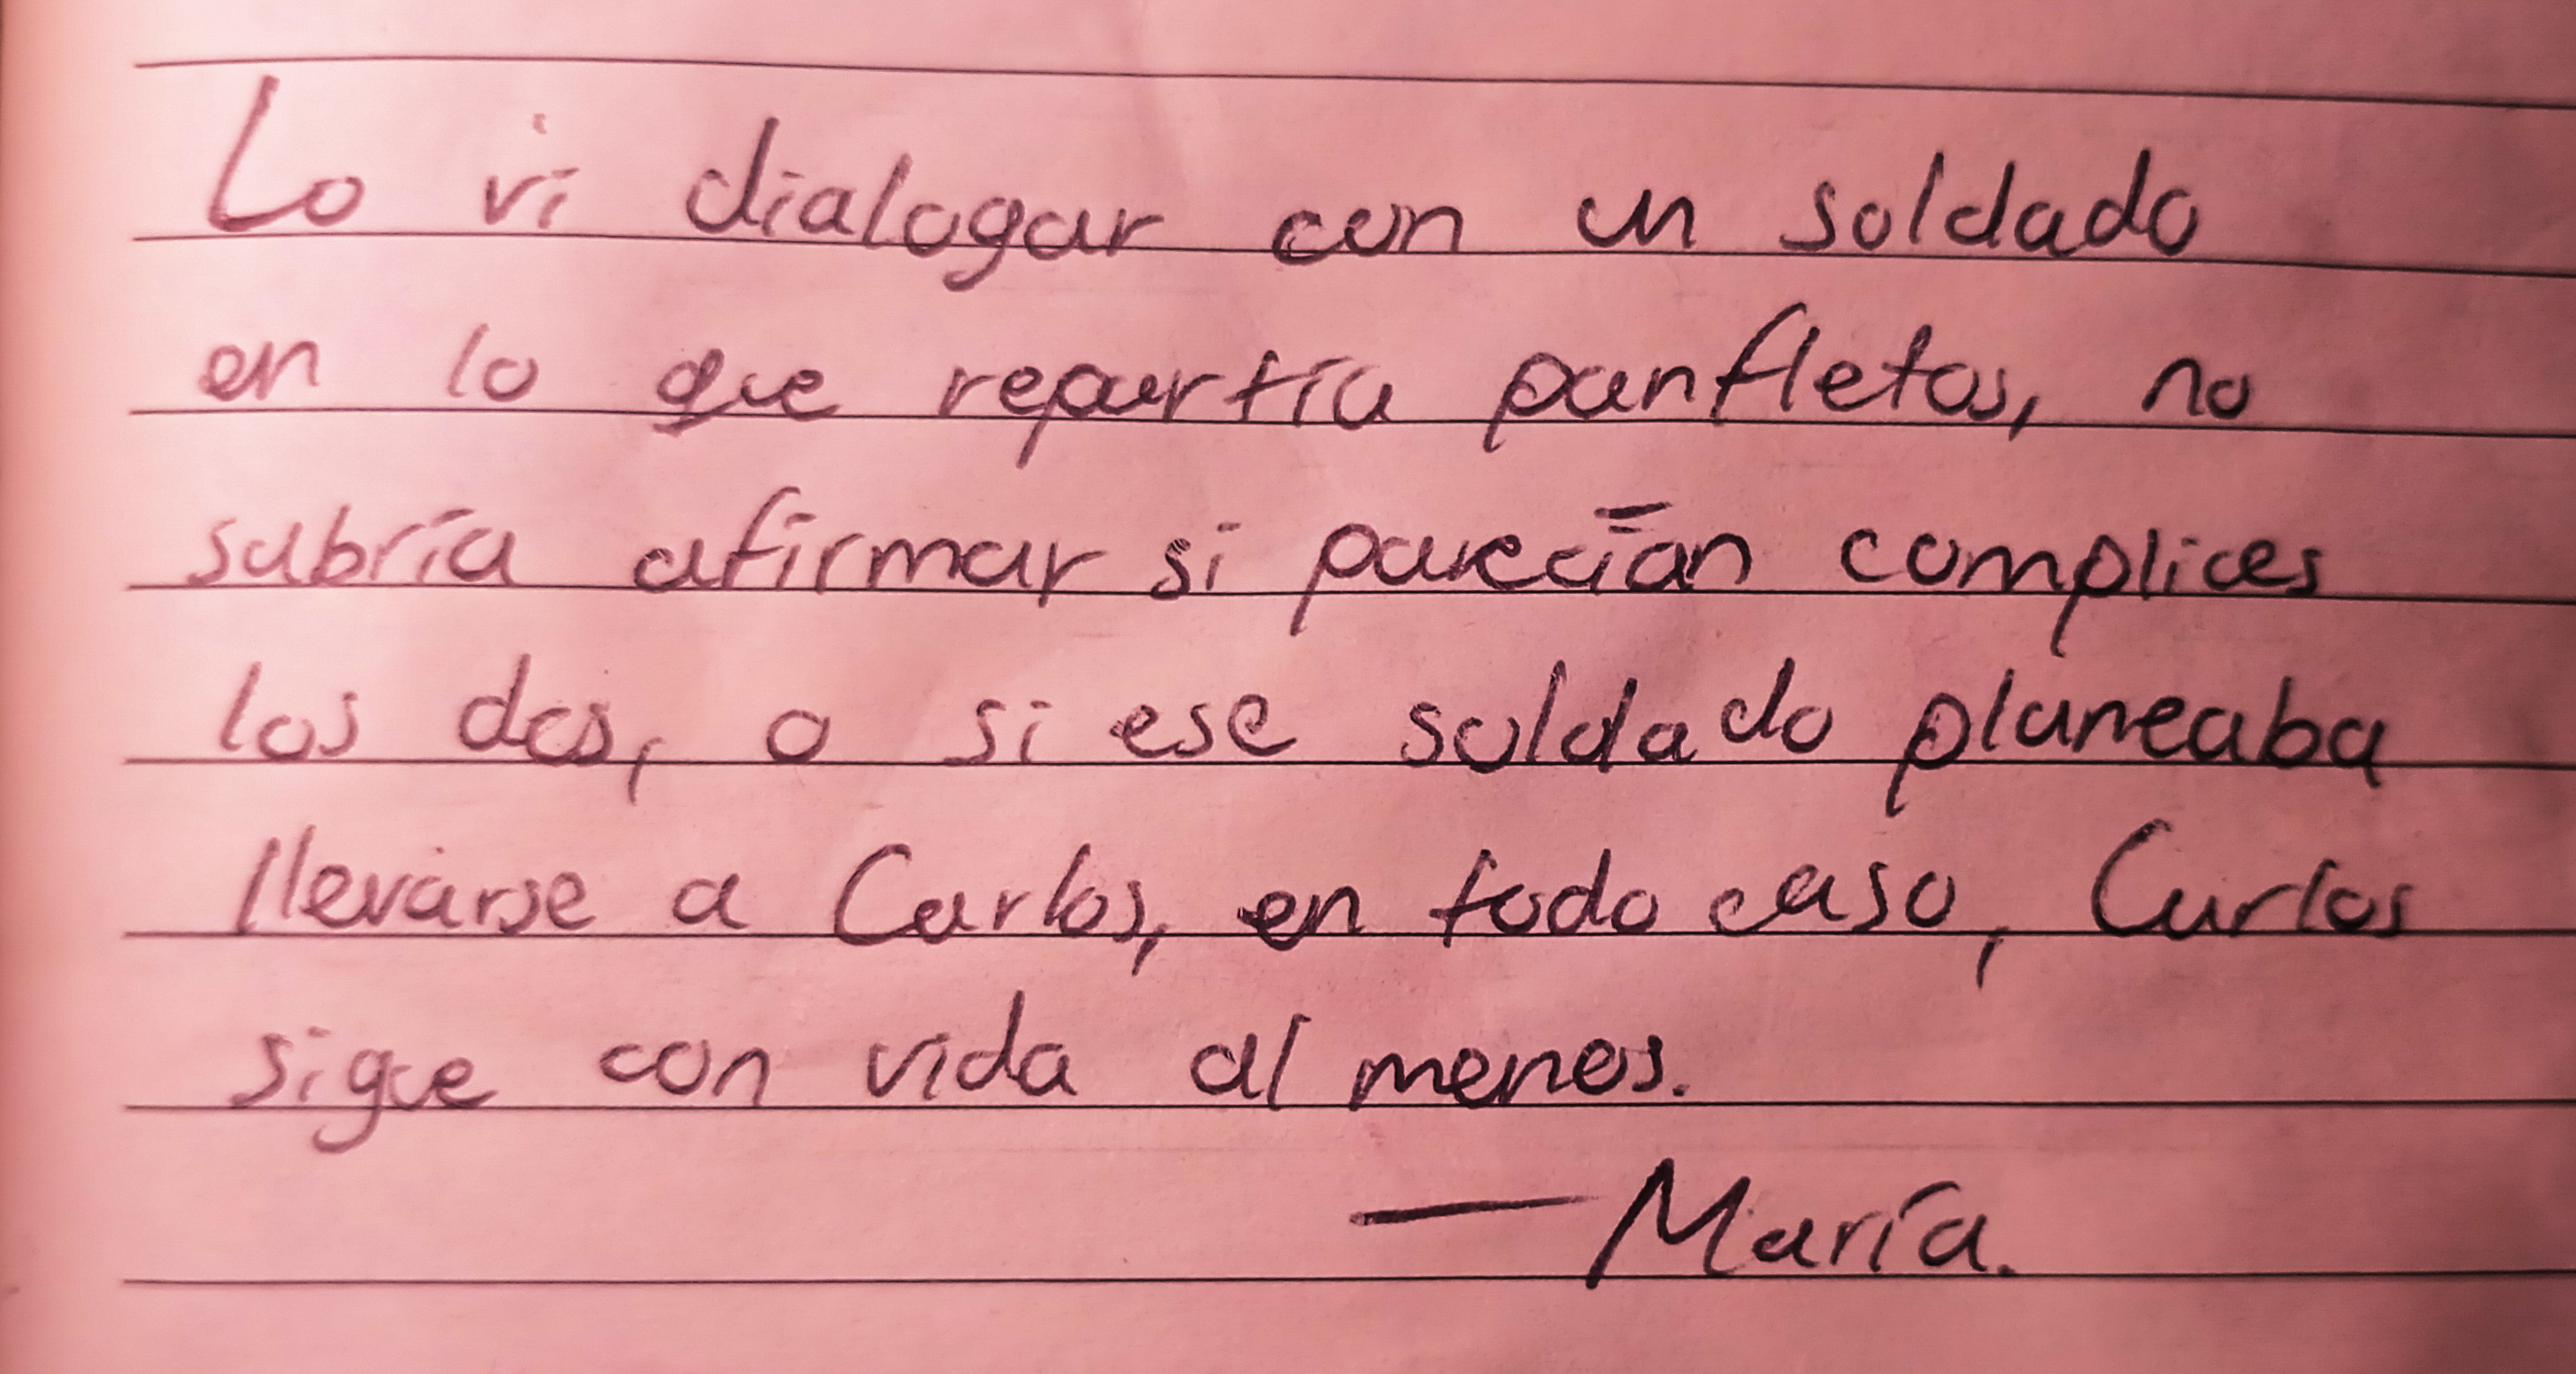 Lo vi dialogar con un soldado
en lo que repartía panfletos, no
sabría afirmar si parecían complices
los dos, o si ese soldado planeaba
llevarse a Carlos, en todo caso, Carlos
sigue con vida al menos.
— María.